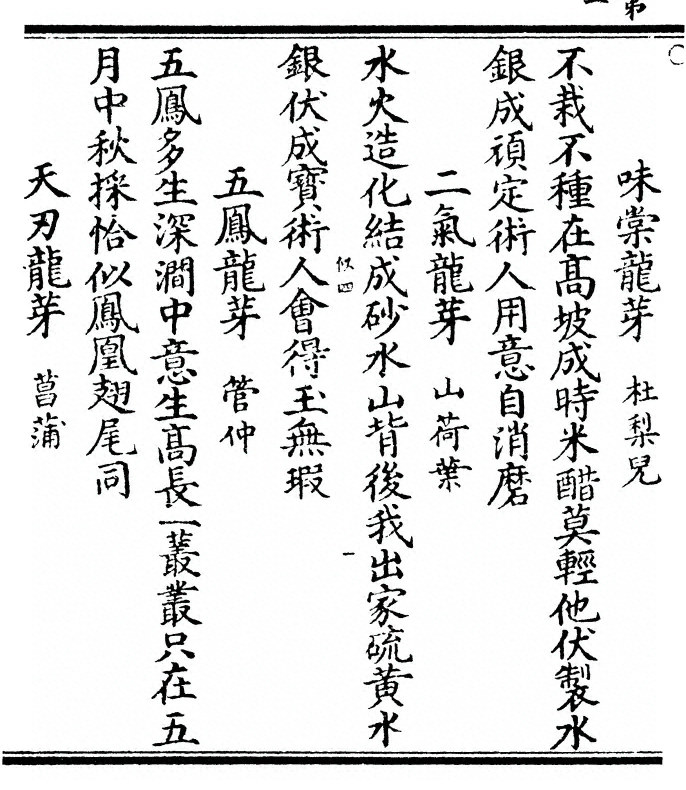 味棠龍芽 杜梨兒
不栽不種在髙坡成時米醋莫輕他伏製水
銀成頑定術人用意自消磨
二氣龍芽 山荷葉
水火造化結成砂水山背後我出家硫黄水
似四 一
銀伏成寶術人會得玉無瑕
五鳳龍芽 管仲
五鳳多生深澗中意生髙長一叢叢只在五
月中秋採恰似鳳凰翅尾同
天刃龍芽 菖蒲